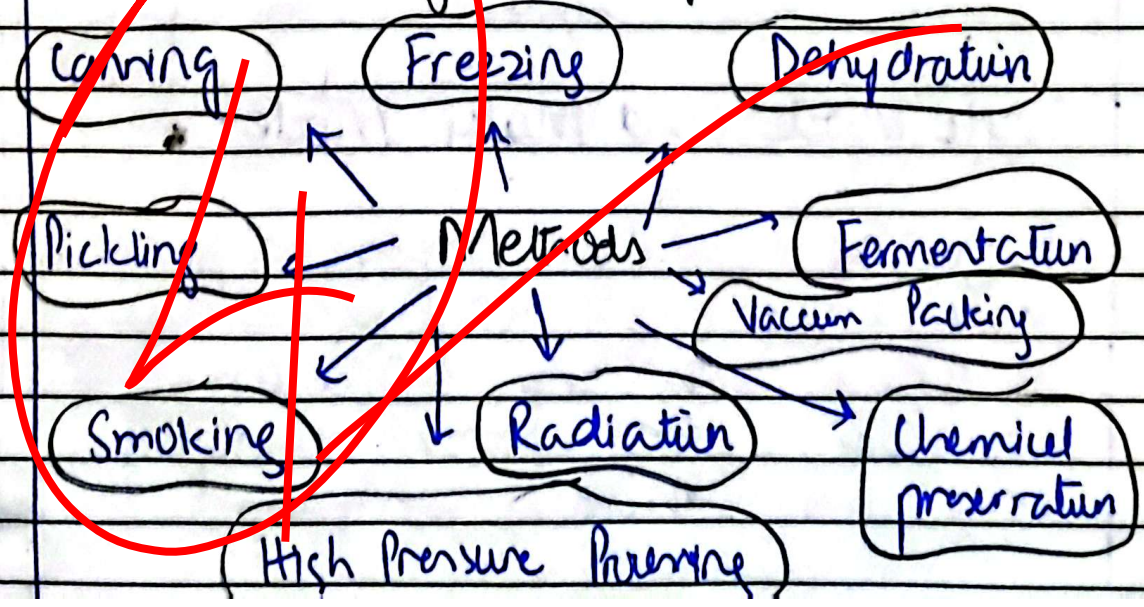 Canning Freezing Dehydration
Pickling Methods Fermentation
Vaccum Packing
Smoking Radiation Chemical
preservation
High Pressure
4